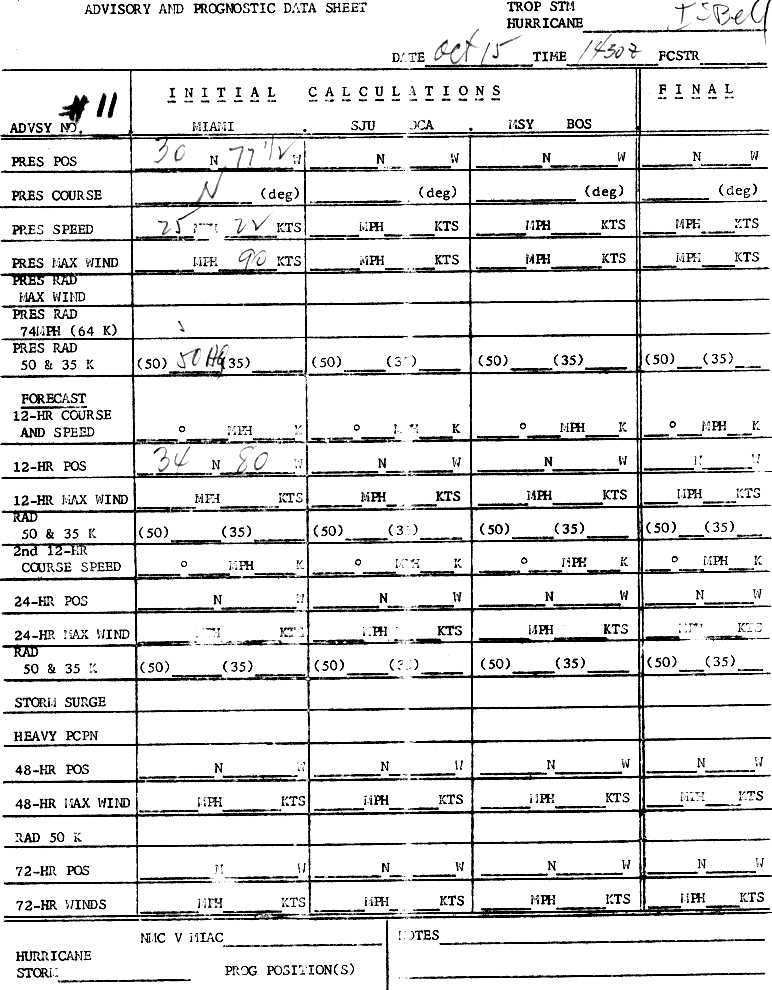 ADVISORY AND PROGNOSTIC DATA SHEET TROP STM
HURRICANE IsBell
DATE Oct 15 TIME 1430z FCSTR
#11 INITIAL CALCULATIONS FINAL
ADVSY NO. MIAMI . SJU DCA . MSY BOS
PRES POS 30 N 77 1/2 W N W N W N W
PRES COURSE N (deg) (deg) (deg) (deg)
PRES SPEED 25 MPH 22 KTS MPH KTS MPH KTS MPH KTS
PRES MAX WIND MPH 90 KTS MPH KTS MPH KTS MPH KTS
PRES RAD
MAX WIND
PRES RAD
74MPH (64 K)
PRES RAD
50 & 35 K (50) 50 (35) (50) (35) (50) (35) (50) (35)
FORECAST
12-HR COURSE
AND SPEED ° MPH K ° MPH K ° MPH K ° MPH K
12-HR POS 34 N 80 W N W N W N W
12-HR MAX WIND MPH KTS MPH KTS MPH KTS MPH KTS
RAD
50 & 35 K (50) (35) (50) (35) (50) (35) (50) (35)
2nd 12-HR
COURSE SPEED ° MPH K ° MPH K ° MPH K ° MPH K
24-HR POS N W N W N W N W
24-HR MAX WIND MPH KTS MPH KTS MPH KTS MPH KTS
RAD
50 & 35 K (50) (35) (50) (35) (50) (35) (50) (35)
STORM SURGE
HEAVY PCPN
48-HR POS N W N W N W N W
48-HR MAX WIND MPH KTS MPH KTS MPH KTS MPH KTS
RAD 50 K
72-HR POS N W N W N W N W
72-HR WINDS MPH KTS MPH KTS MPH KTS MPH KTS
NMC V MIAC NOTES
HURRICANE
STORM PROG POSITION(S)